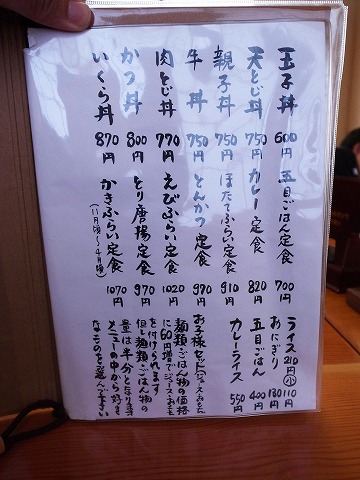 玉子丼 600円
天とじ丼 750円
親子丼 750円
牛丼 750円
肉とじ丼 770円
かつ丼 800円
いくら丼 870円
五目ごはん定食 700円
カレー定食 820円
ほたてふらい定食 910円
とんかつ定食 970円
えびふらい定食 1020円
とり唐揚定食 970円
かきふらい定食 1070円
(11月頃〜4月頃)
ライス 210円 小 110円
おにぎり 180円
五目ごはん 400円
カレーライス 550円
お子様セット
麺類、ごはん物の価格
に60円増でジュース、おもちゃ
を付けられます
但し麺類、ごはん物の
量は半分となります
メニューの中から好き
なものを選んで下さい